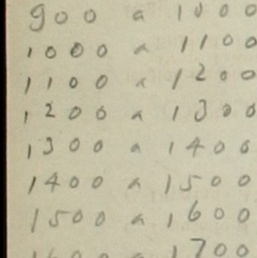 900 a 1000
1000 a 1100
1100 a 1200
1200 a 1300
1300 a 1400
1400 a 1500
1500 a 1600
1600 a 1700